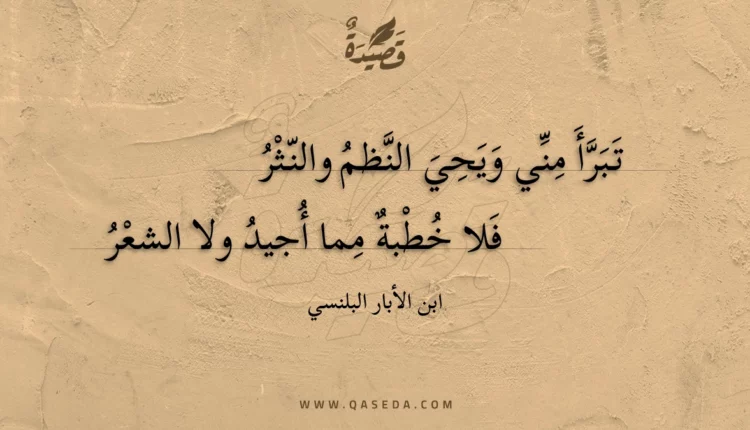 قَصِيدَةٌ
تَبَرَّأَ مِنِّي وَيَحِيَ النَّظمُ والنّثْرُ
فَلا خُطْبةٌ مِما أُجيدُ ولا الشعْرُ
ابن الأبار البلنسي
WWW.QASEDA.COM